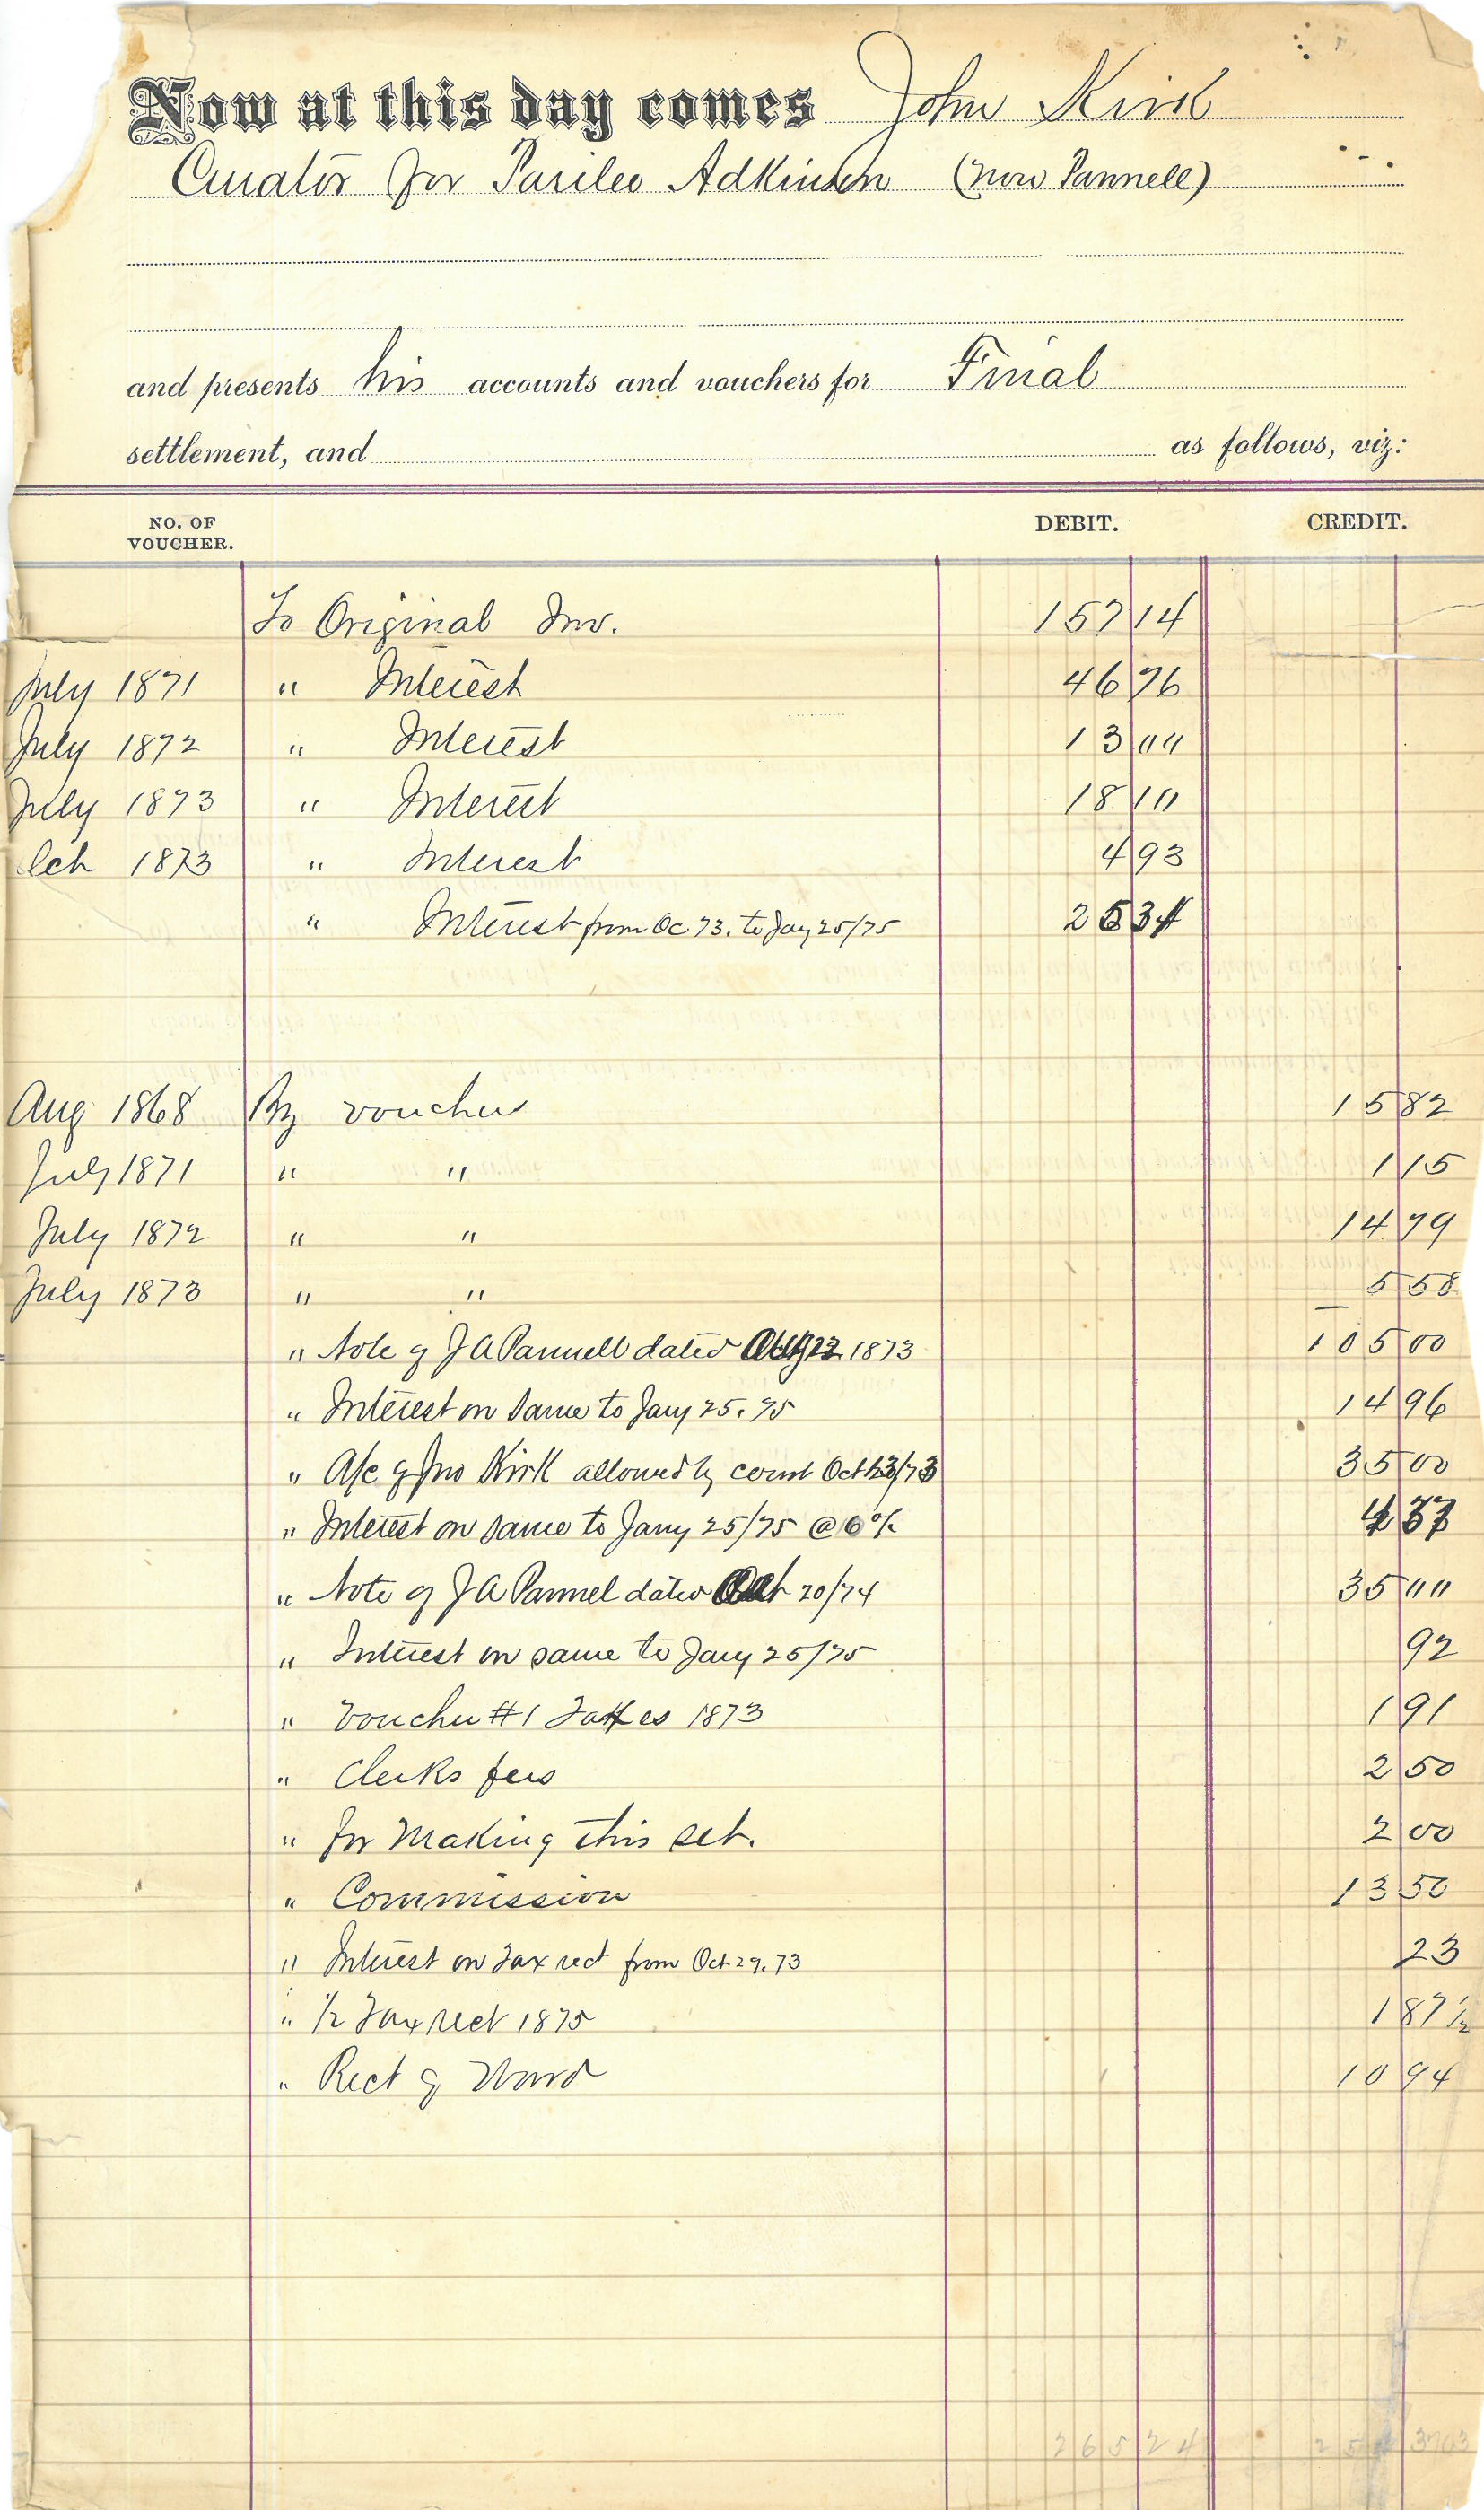 Now at this day comes John Kirk
Curator for Parilee Adkinson (now Pannell)
and presents his accounts and vouchers for Final
settlement, and as follows, viz:
NO. OF VOUCHER. DEBIT. CREDIT.
To Original Inv. 157 14
July 1871 " Interest 46 76
July 1872 " Interest 13 00
July 1873 " Interest 18 10
Oct 1873 " Interest 4 93
" Interest from Oc 73. to Jany 25/75 25 34
Aug 1868 By voucher 15 82
July 1871 " " 1 15
July 1872 " " 14 79
July 1873 " " 5 58
" Note of J A Pannell dated Aug 23 1873 105 00
" Interest on same to Jany 25. 75 14 96
" A/c of Jno Kirk allowed by court Oct 23/73 35 00
" Interest on same to Jany 25/75 @ 6% 37
" Note of J A Pannel dated 20/74 35 00
" Interest on same to Jany 25/75 92
" Voucher #1 Taxes 1873 1 91
" Clerks fees 2 50
" for Making this set. 2 00
" Commission 13 50
" Interest on Tax rect from Oct 29. 73 23
" 1/2 Tax rect 1875 1 87 1/2
" Rect of Ward 10 94
265 24